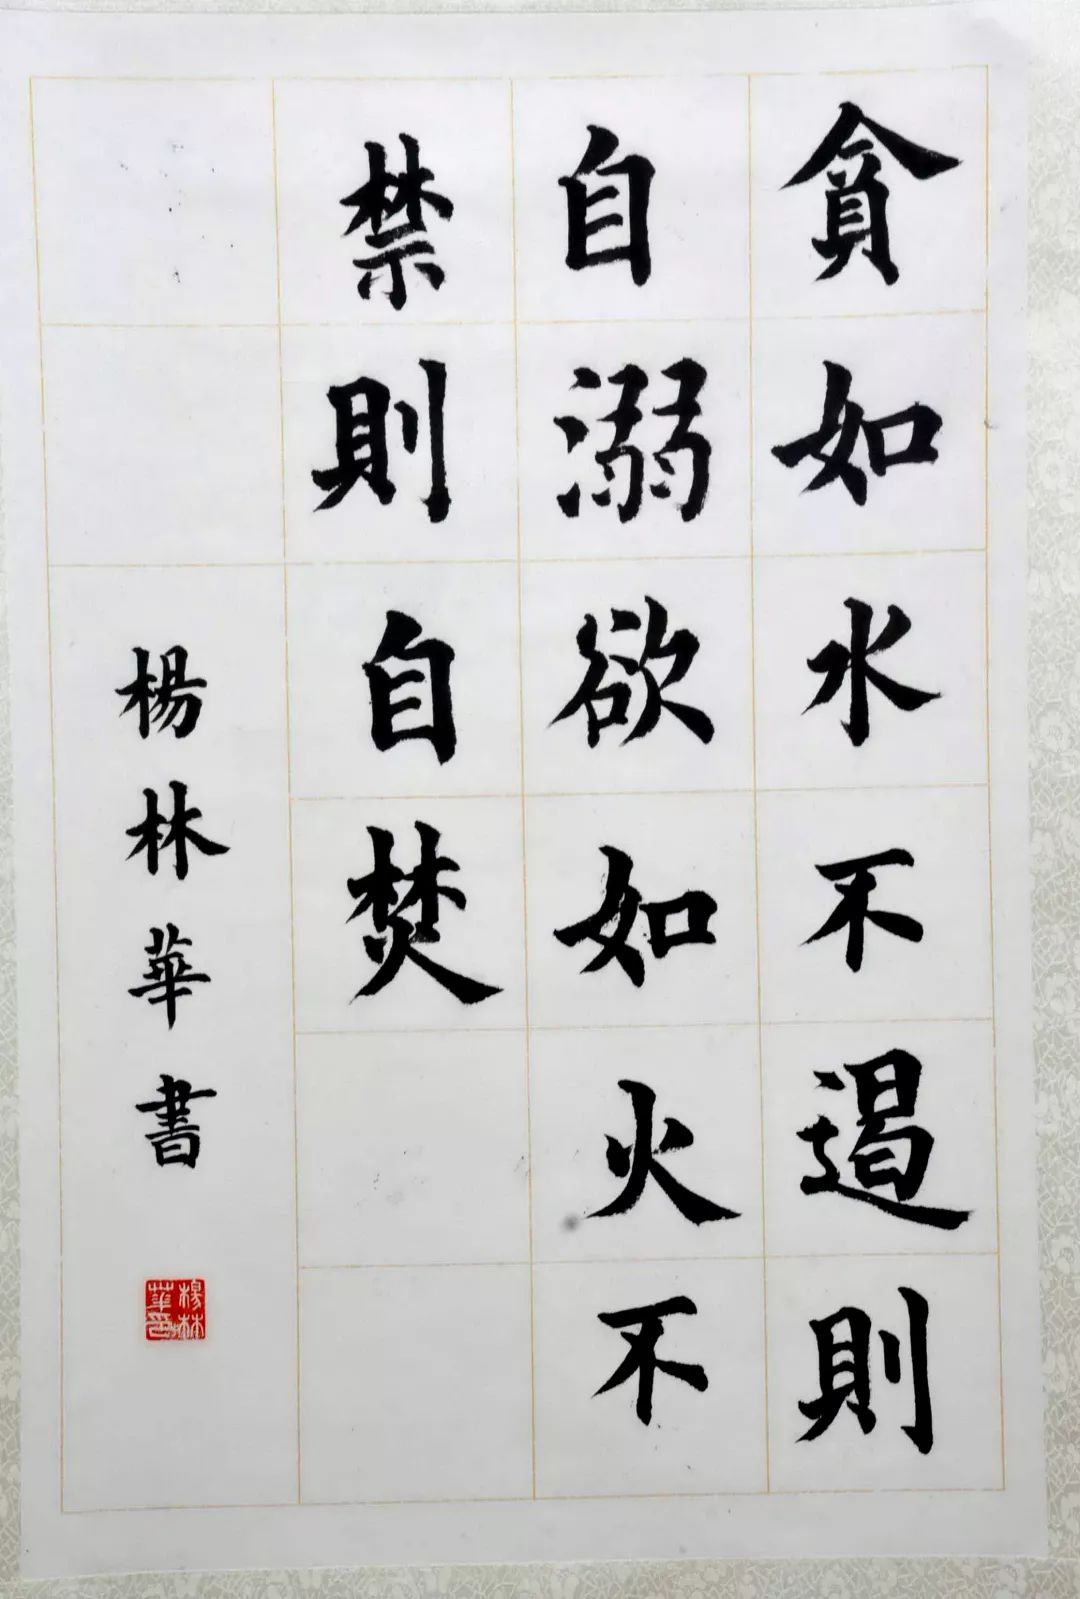 貪如水不遏則
自溺欲如火不
禁則自焚
楊林華書
楊林
華印